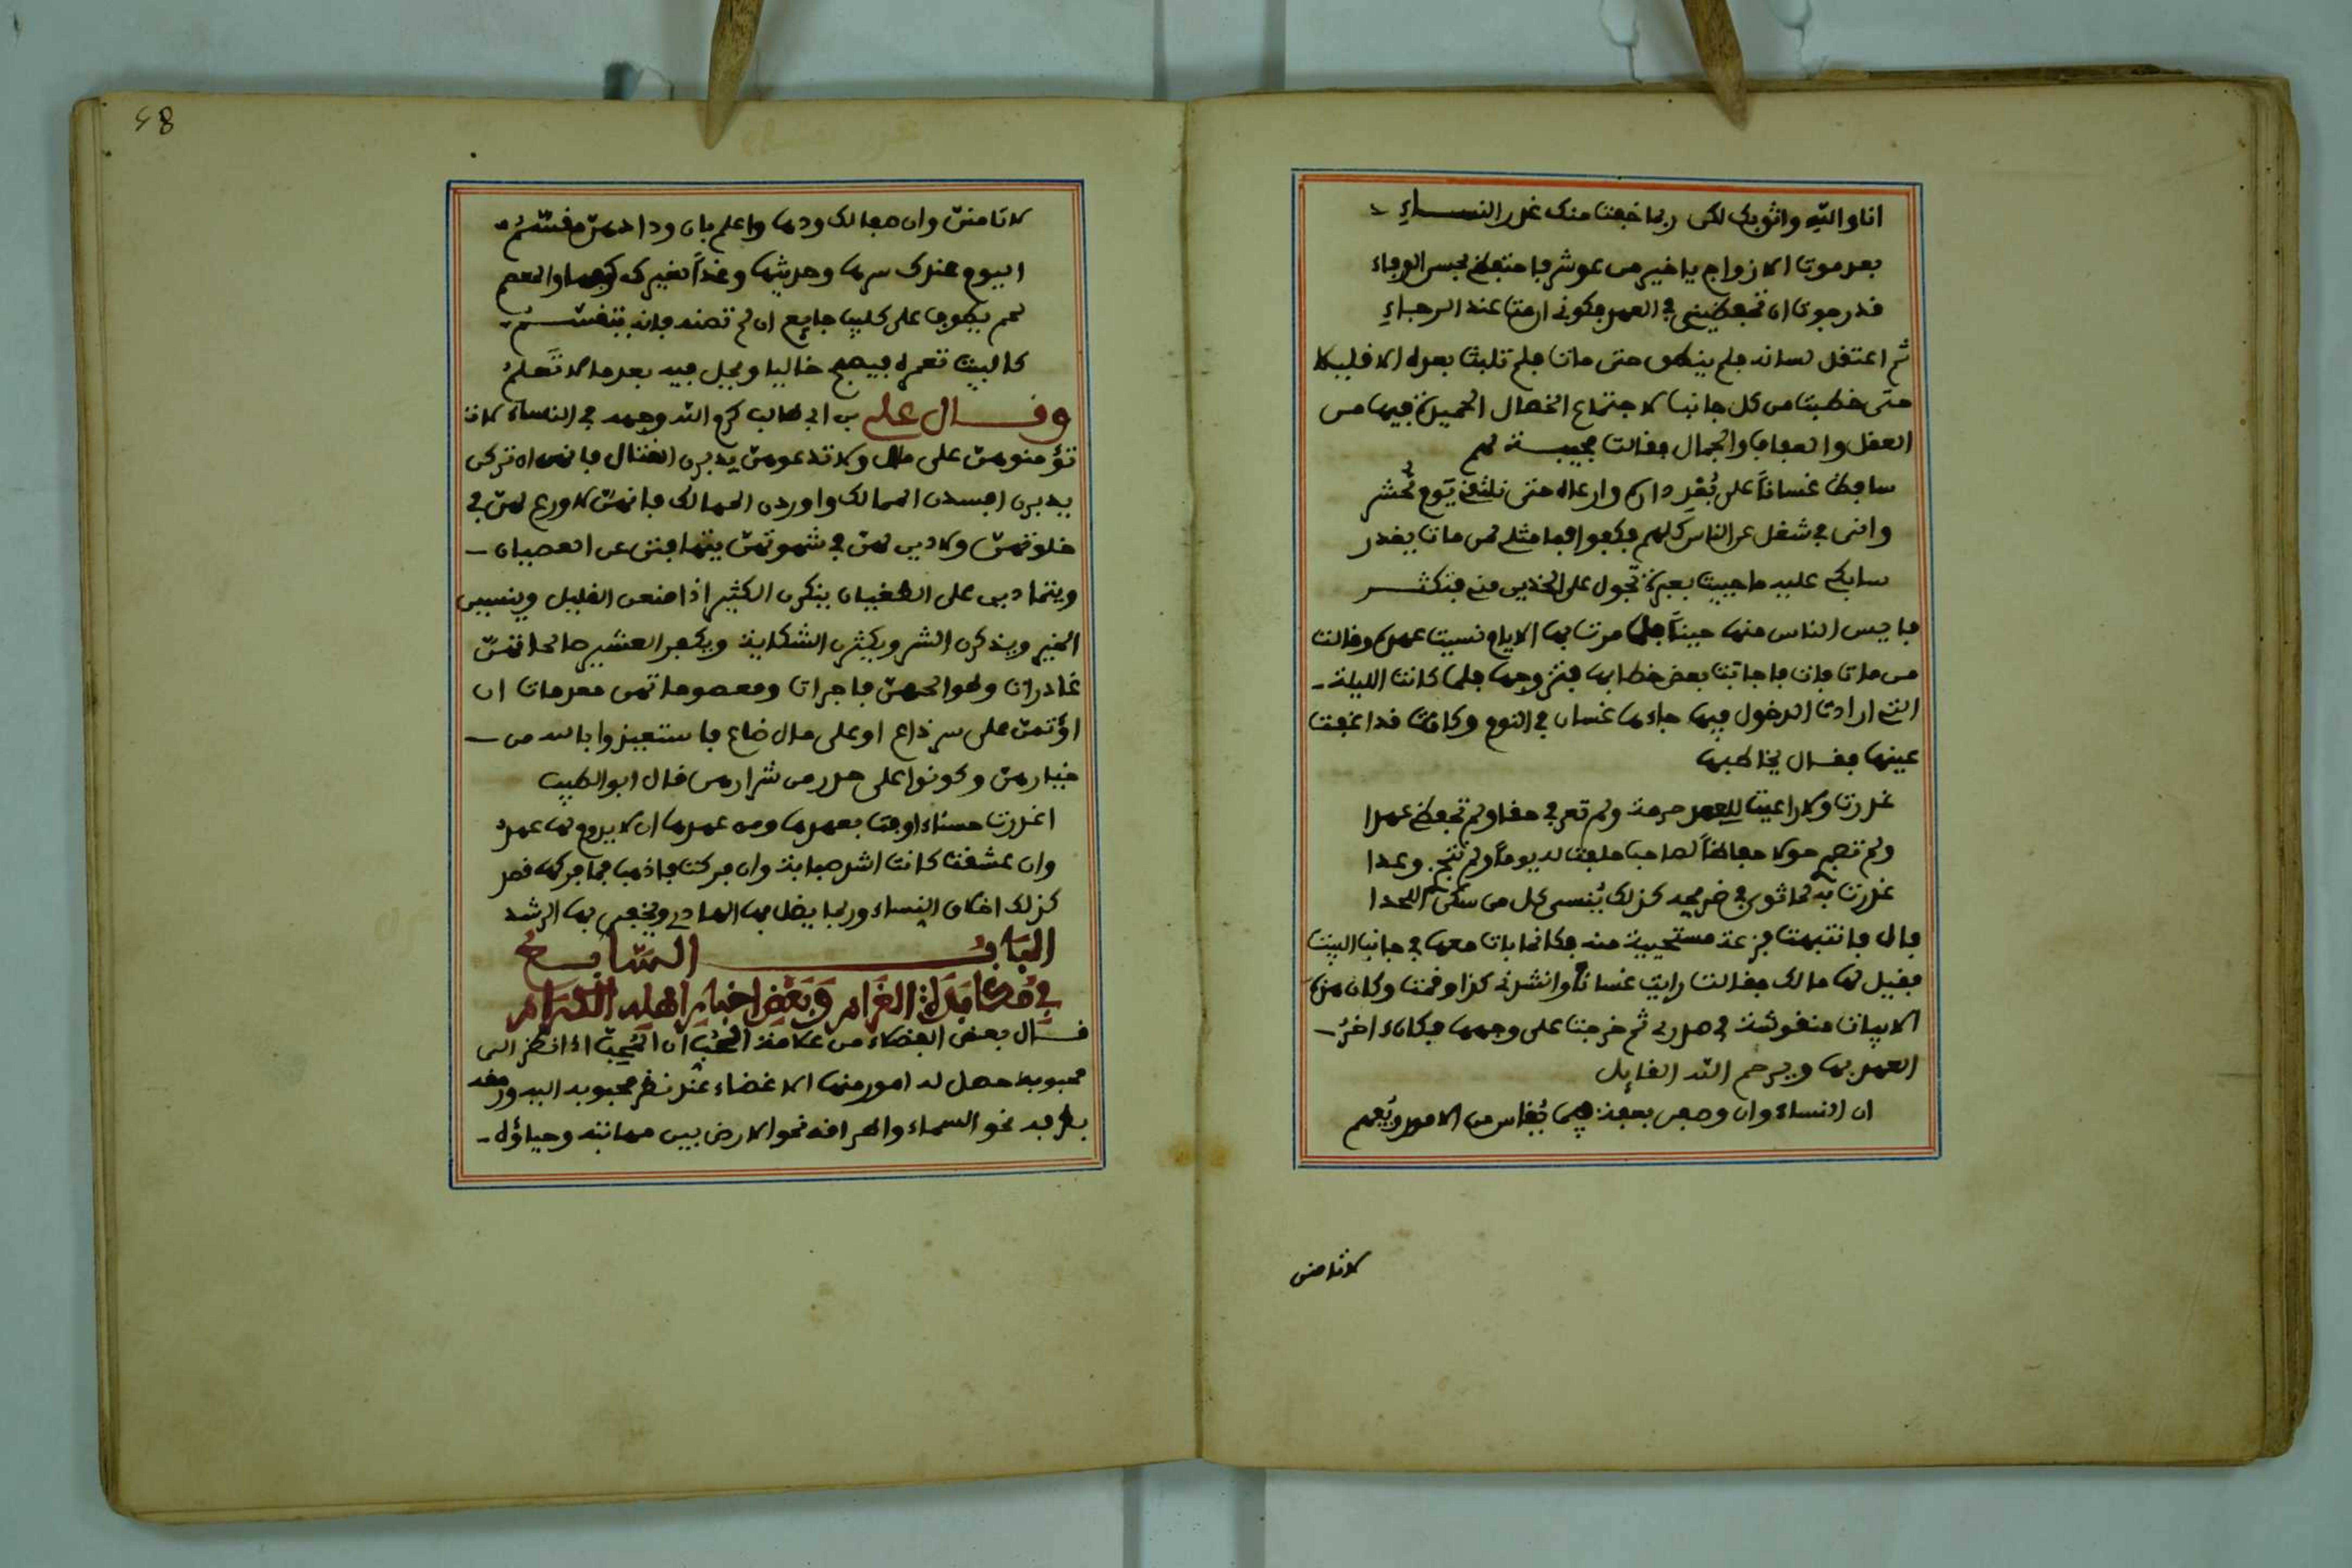 انا والله واثق بك لكن ربما خفت منك غدر النساء
بعد موت الازواج يا خير من عوشر فاحتفظى بحسن الوفاء
قد رجوت ان تحفظينى فى العهد فكونى ان مت عند الرجاء
ثم اعتقل لسانه فلم ينطق حتى مات فلم تلبث بعده الا قليلا
حتى خطبت من كل جانب لاجتماع الخصال الحميدة فيها من
العقل والعفاف والجمال فقالت مجيبة لهم
ساحفظ غسانا على بعد داره وارعاه حتى نلتقى يوم نحشر
وانى فى شغل عن الناس كلهم فكفوا فما مثلى لمن مات يغدر
سابكى عليه ما حييت بعبرة تجول على الخدين منى فتكثر
فايس الناس منها حينا فلما مرت بها الايام نسيت عهده وقالت
من مات فات فاجابت بعض خطابها فتزوجها فلما كانت الليلة
التى ارادت الدخول فيها جاءها غسان فى النوم وكانت قد اغفت
عينها فقال يخاطبها
غدرت ولا راعيت للعهد حرمة ولم تعرفى حقا ولم تحفظى عهدا
ولم تصبرى حولا حفاظا لصاحب حلفت له يوما ولم تنجزى وعدا
غدرت به لما ثوى فى ضريحه كذلك ينسى كل من سكن اللحدا
قال فانتبهت فزعة مستحيية منه فكانما بات معها فى جانب البيت
فقيل لها مالك فقالت رايت غسانا وانشدنى كذا وقمت وكان هذه
الابيات منقوشة فى صدرى ثم خرجت على وجهها فكان اخر
العهد بها ويرحم الله القايل
ان النساء وان وصفن بعفة فيما يقاس من الامور ويعهم
لا تامنن
لا تامنن وان صفا لك ودها واعلم بان ودادهن مقسم
اليوم عندك سرها وحديثها وغدا لغيرك كفها والمعصم
لحم يطوف على كليب جايع ان لم تصنه فانه يتقسم
كالبيت تعمره فيصبح خاليا ويحل فيه بعد ما لا تعلم
وقال على بن ابى طالب كرم الله وجهه فى النساء لا
تؤمنوهن على مال ولا تدعوهن يدبرن فانهن ان تركن
يدبرن افسدن الممالك واوردن المهالك فانهن لا ورع لهن فى
خلوتهن ولا دين لهن فى شهوتهن يتهافتن عن العصيان
ويتمادين على الطغيان ينكرن الكثير اذا منعن القليل وينسين
الخير ويذكرن الشر ويكثرن الشكاية ويكفرن العشير صالحاتهن
غادرات وطوالحهن فاجرات ومعصوماتهن معدومات ان
اؤتمن على سر ذاع او على مال ضاع فاستعيذوا بالله من
خيارهن وكونوا على حذر من شرارهن قال ابو الطيب
اغدرت حسناء اوفت بعهدها ومن عهدها ان لا يدوم لها عهد
وان عشقت كانت اشد صبابة وان فركت فاذهب فما فركها قصد
كذلك اخلاق النساء وربما يضل بها الهادى ويخفى بها الرشد
الباب السابع
فى مكابدة الغرام وبعض اخبار اهله الكرام
قال بعض الفضلاء من علامة الحب ان المحب اذا نظر الى
محبوبه حصل له امور منها الاغضاء عند نظر محبوبه اليه ورمقه
بطرفه نحو السماء واطراقه نحو الارض بين مهابته وحياؤه